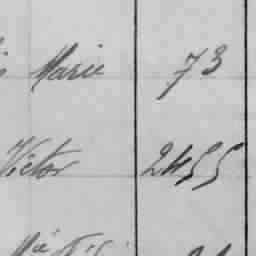 Marie 73
Victor 2455